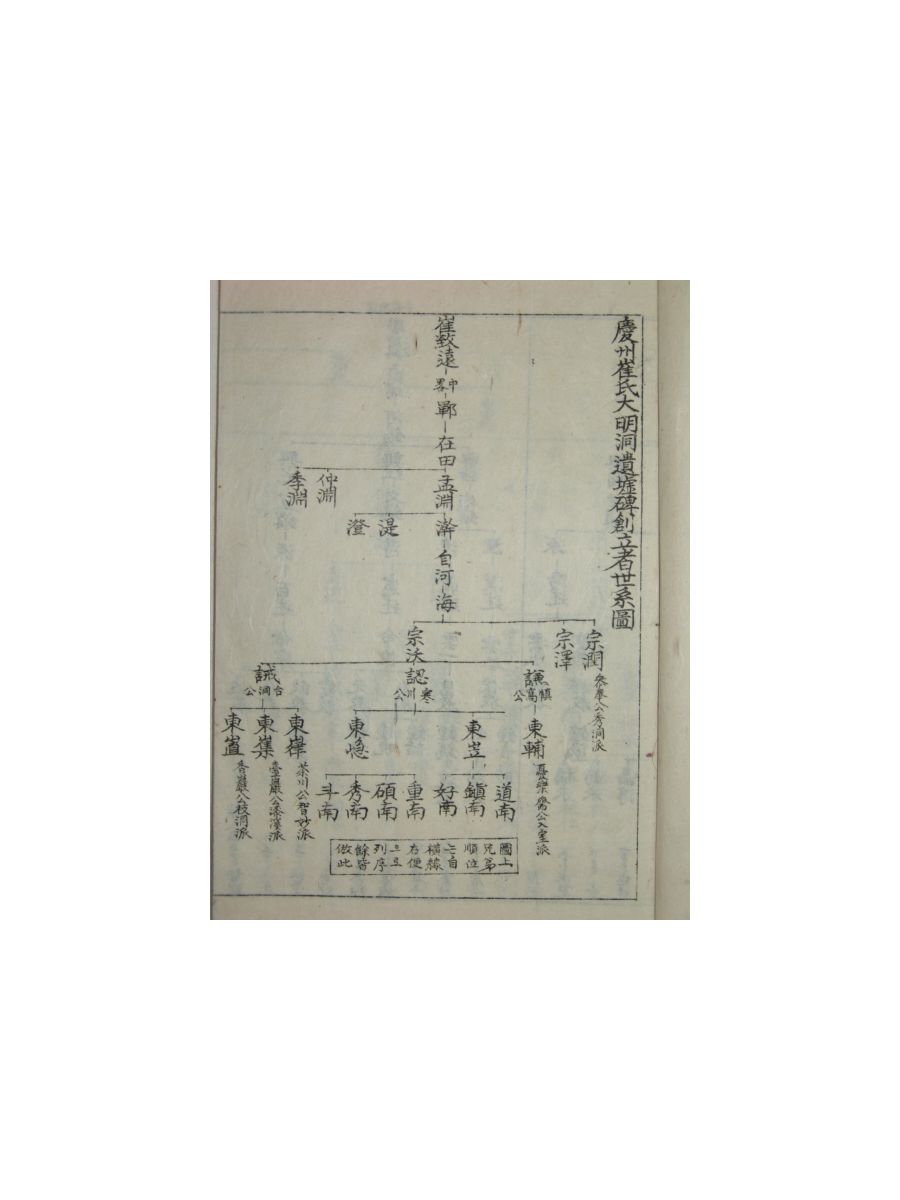 慶州崔氏大明洞遺墟碑創立者世系圖
崔致遠
中畧
鄲
在田
孟淵
仲淵
季淵
瀞
湜
澄
自河
海
宗潤
叅奉公秀洞派
宗澤
宗沃
謙
慎窩公
認
寒川公
誠
台洞公
東輔
憂樂齋公入室派
東岦
東㠍
東嵂
茶川公智妙派
東㠎
臺巖公漆溪派
東㠂
杏巖公枝洞派
道南
鎭南
好南
重南
碩南
秀南
斗南
圖上
兄弟
順位
는自
橫線
右便
으로
列序
餘皆
倣此